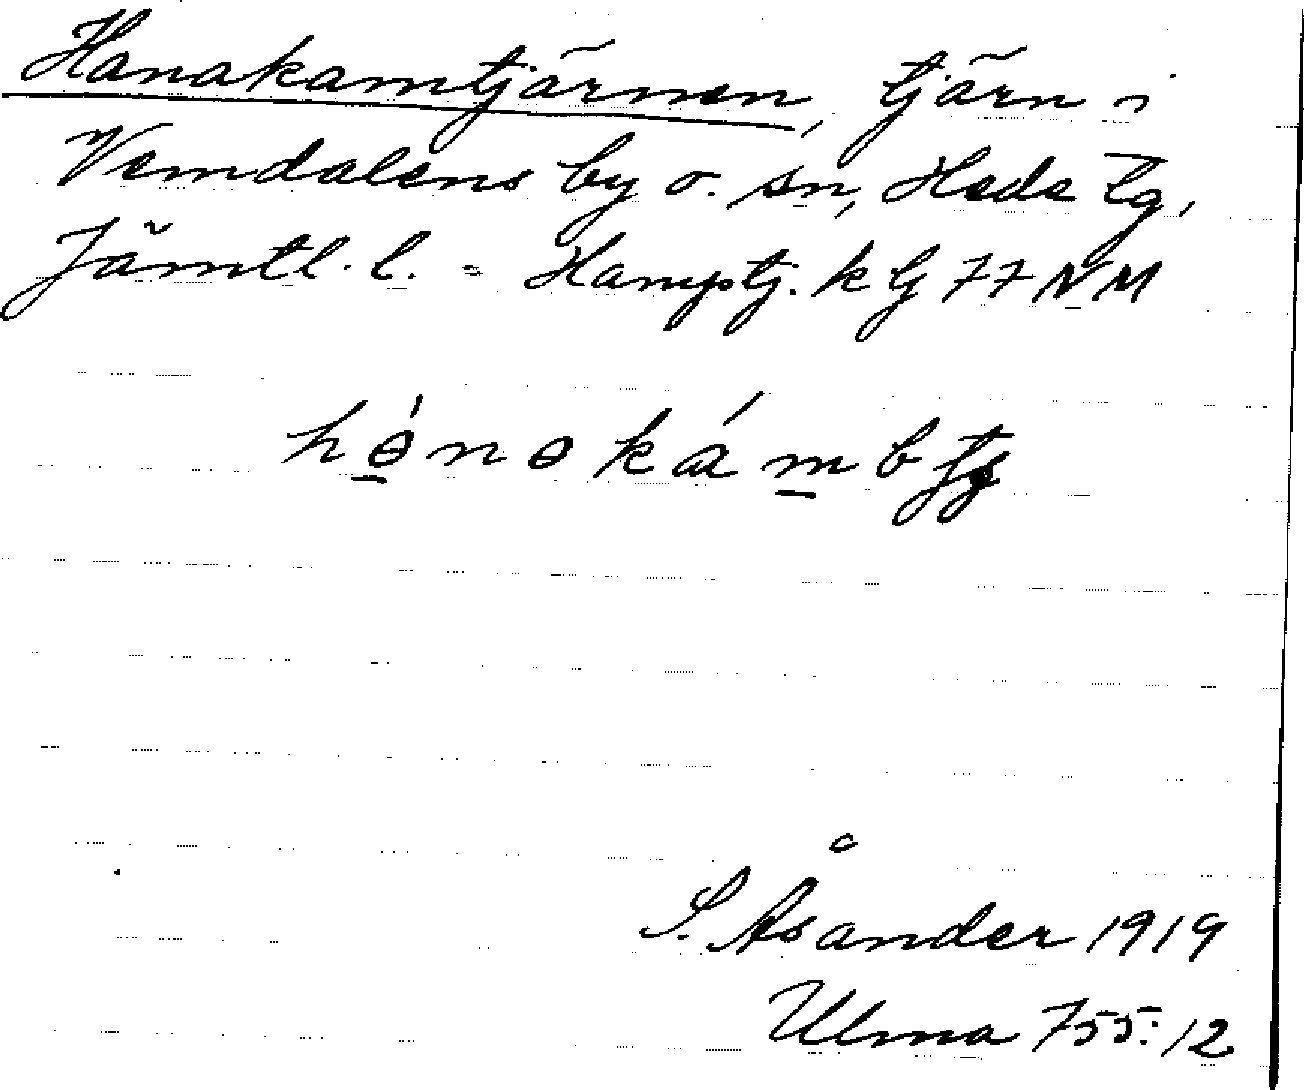 Hanakamtjärnen, tjärn i
Vemdalens by o. sn, Hede tg,
Jämtl. l. = Hamptj. k bl 77 NM
hǿnɵkámb
S. Åsander 1919
Ulma 755:12